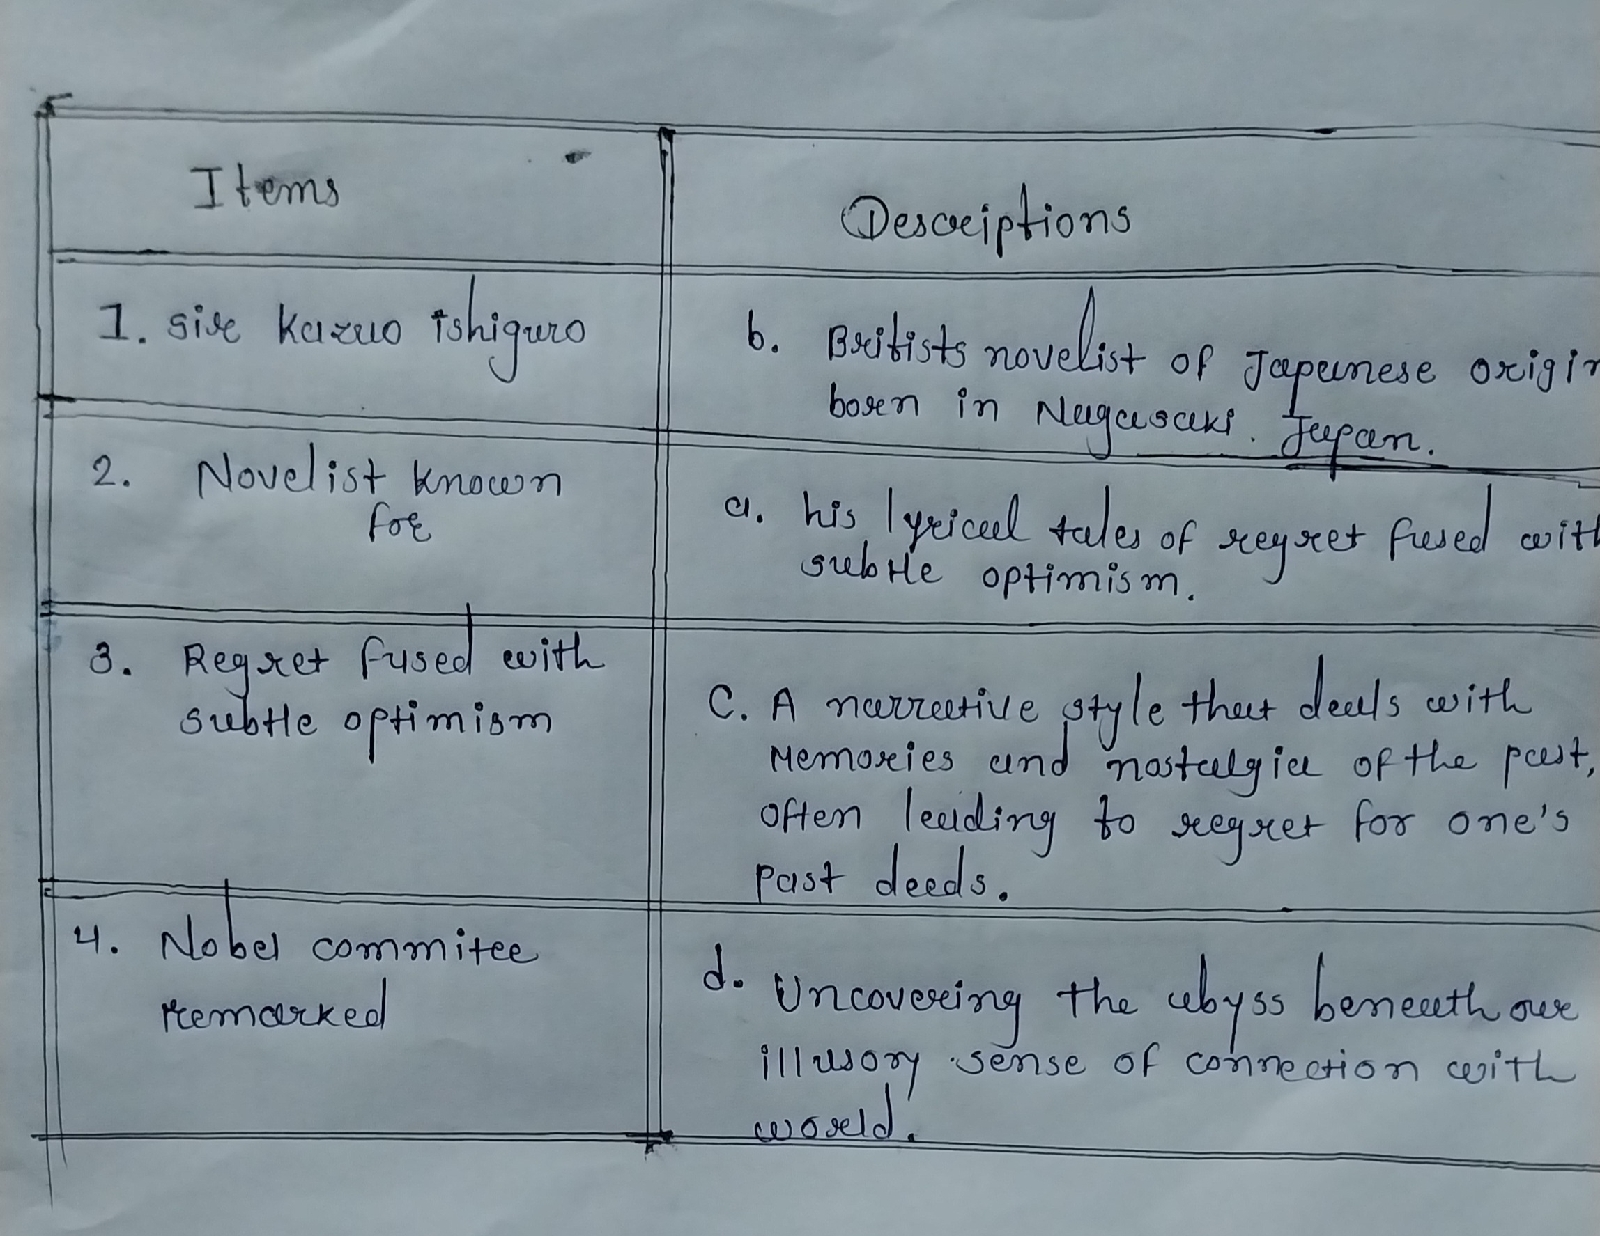 Items
Descriptions
1. sire kazuo ishiguro
b. Britists novelist of Japanese origin
born in Nagasaki. Japan.
2. Novelist known
for
a. his lyrical tales of regret fused with
subtle optimism.
3. Regret fused with
subtle optimism
C. A narrative style that deals with
Memories and nostalgia of the past,
often leading to regret for one's
past deeds.
4. Nobel commitee
remarked
d. Uncovering the abyss beneath our
illusory sense of connection with
world.